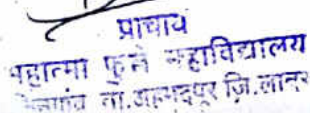 प्राचार्य
महात्मा फुले महाविद्यालय
ता.अहमदपूर जि.लातूर